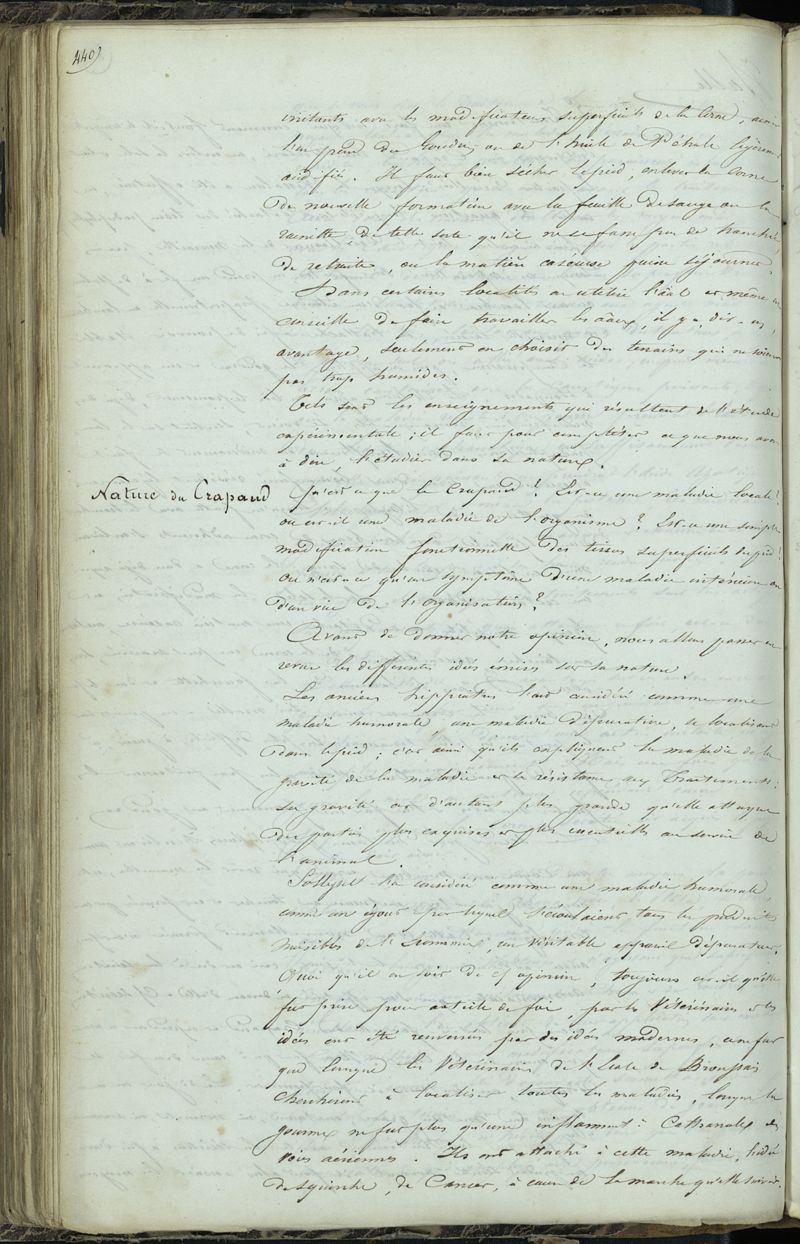 440
irritants avec les modificateurs superficiels de la Corne,
l'on prend du Goudron ou de l'huile de Pétrole légèrement
acidifié. Il faut bien sécher le pied, enlever la corne
de nouvelle formation avec la feuille de sauge ou la
rainette, de telle sorte qu'il ne se fasse pas de tranchée
de retraite, où la matière caséeuse puisse séjourner.
Dans certaines localités on utilise l'âne et même on
conseille de faire travailler les ânes, il y a, dit-on,
avantage, seulement on choisit des terrains qui ne soient
pas trop humides.
Tels sont les enseignements qui résultent de l'étude
expérimentale ; il faut pour compléter ce que nous avons
à dire, l'étudier dans sa nature.
Nature du Crapaud
Qu'est-ce que le Crapaud ? Est-ce une maladie locale ?
ou est-il une maladie de l'organisme ? Est-ce une simple
modification fonctionnelle des tissus superficiels du pied ?
Ou n'est-ce qu'un symptôme d'une maladie intérieure ou
d'un vice de l'organisation ?
Avant de donner notre opinion, nous allons passer en
revue les différentes idées émises sur sa nature.
Les anciens hippiatres l'ont considéré comme une
maladie humorale, une maladie dépurative, se localisant
dans le pied ; c'est ainsi qu'ils expliquent la maladie de la
gravité de la maladie et sa résistance aux Traitements :
sa gravité est d'autant plus grande qu'elle attaque
des parties plus exquises et plus essentielles au service de
l'animal.
Solleysel l'a considéré comme une maladie humorale,
comme un égout par lequel s'écoulaient tous les produits
nuisibles de l'économie, un véritable appareil dépurateur.
Quoi qu'il en soit de cet opinion, toujours est-il qu'elle
fut prise pour article de foi, par les Vétérinaires et les
idées ont été renversées par des idées modernes, ce ne fut
que lorsque les Vétérinaires de l'Ecole de Broussais
cherchèrent à localiser toutes les maladies, lorsque la
gourme ne fut plus qu'une inflammat: Catharrale des
voies aériennes. Ils ont attaché à cette maladie, l'idée
de squirrhe, de Cancer, à cause de la marche qu'elle suivait.